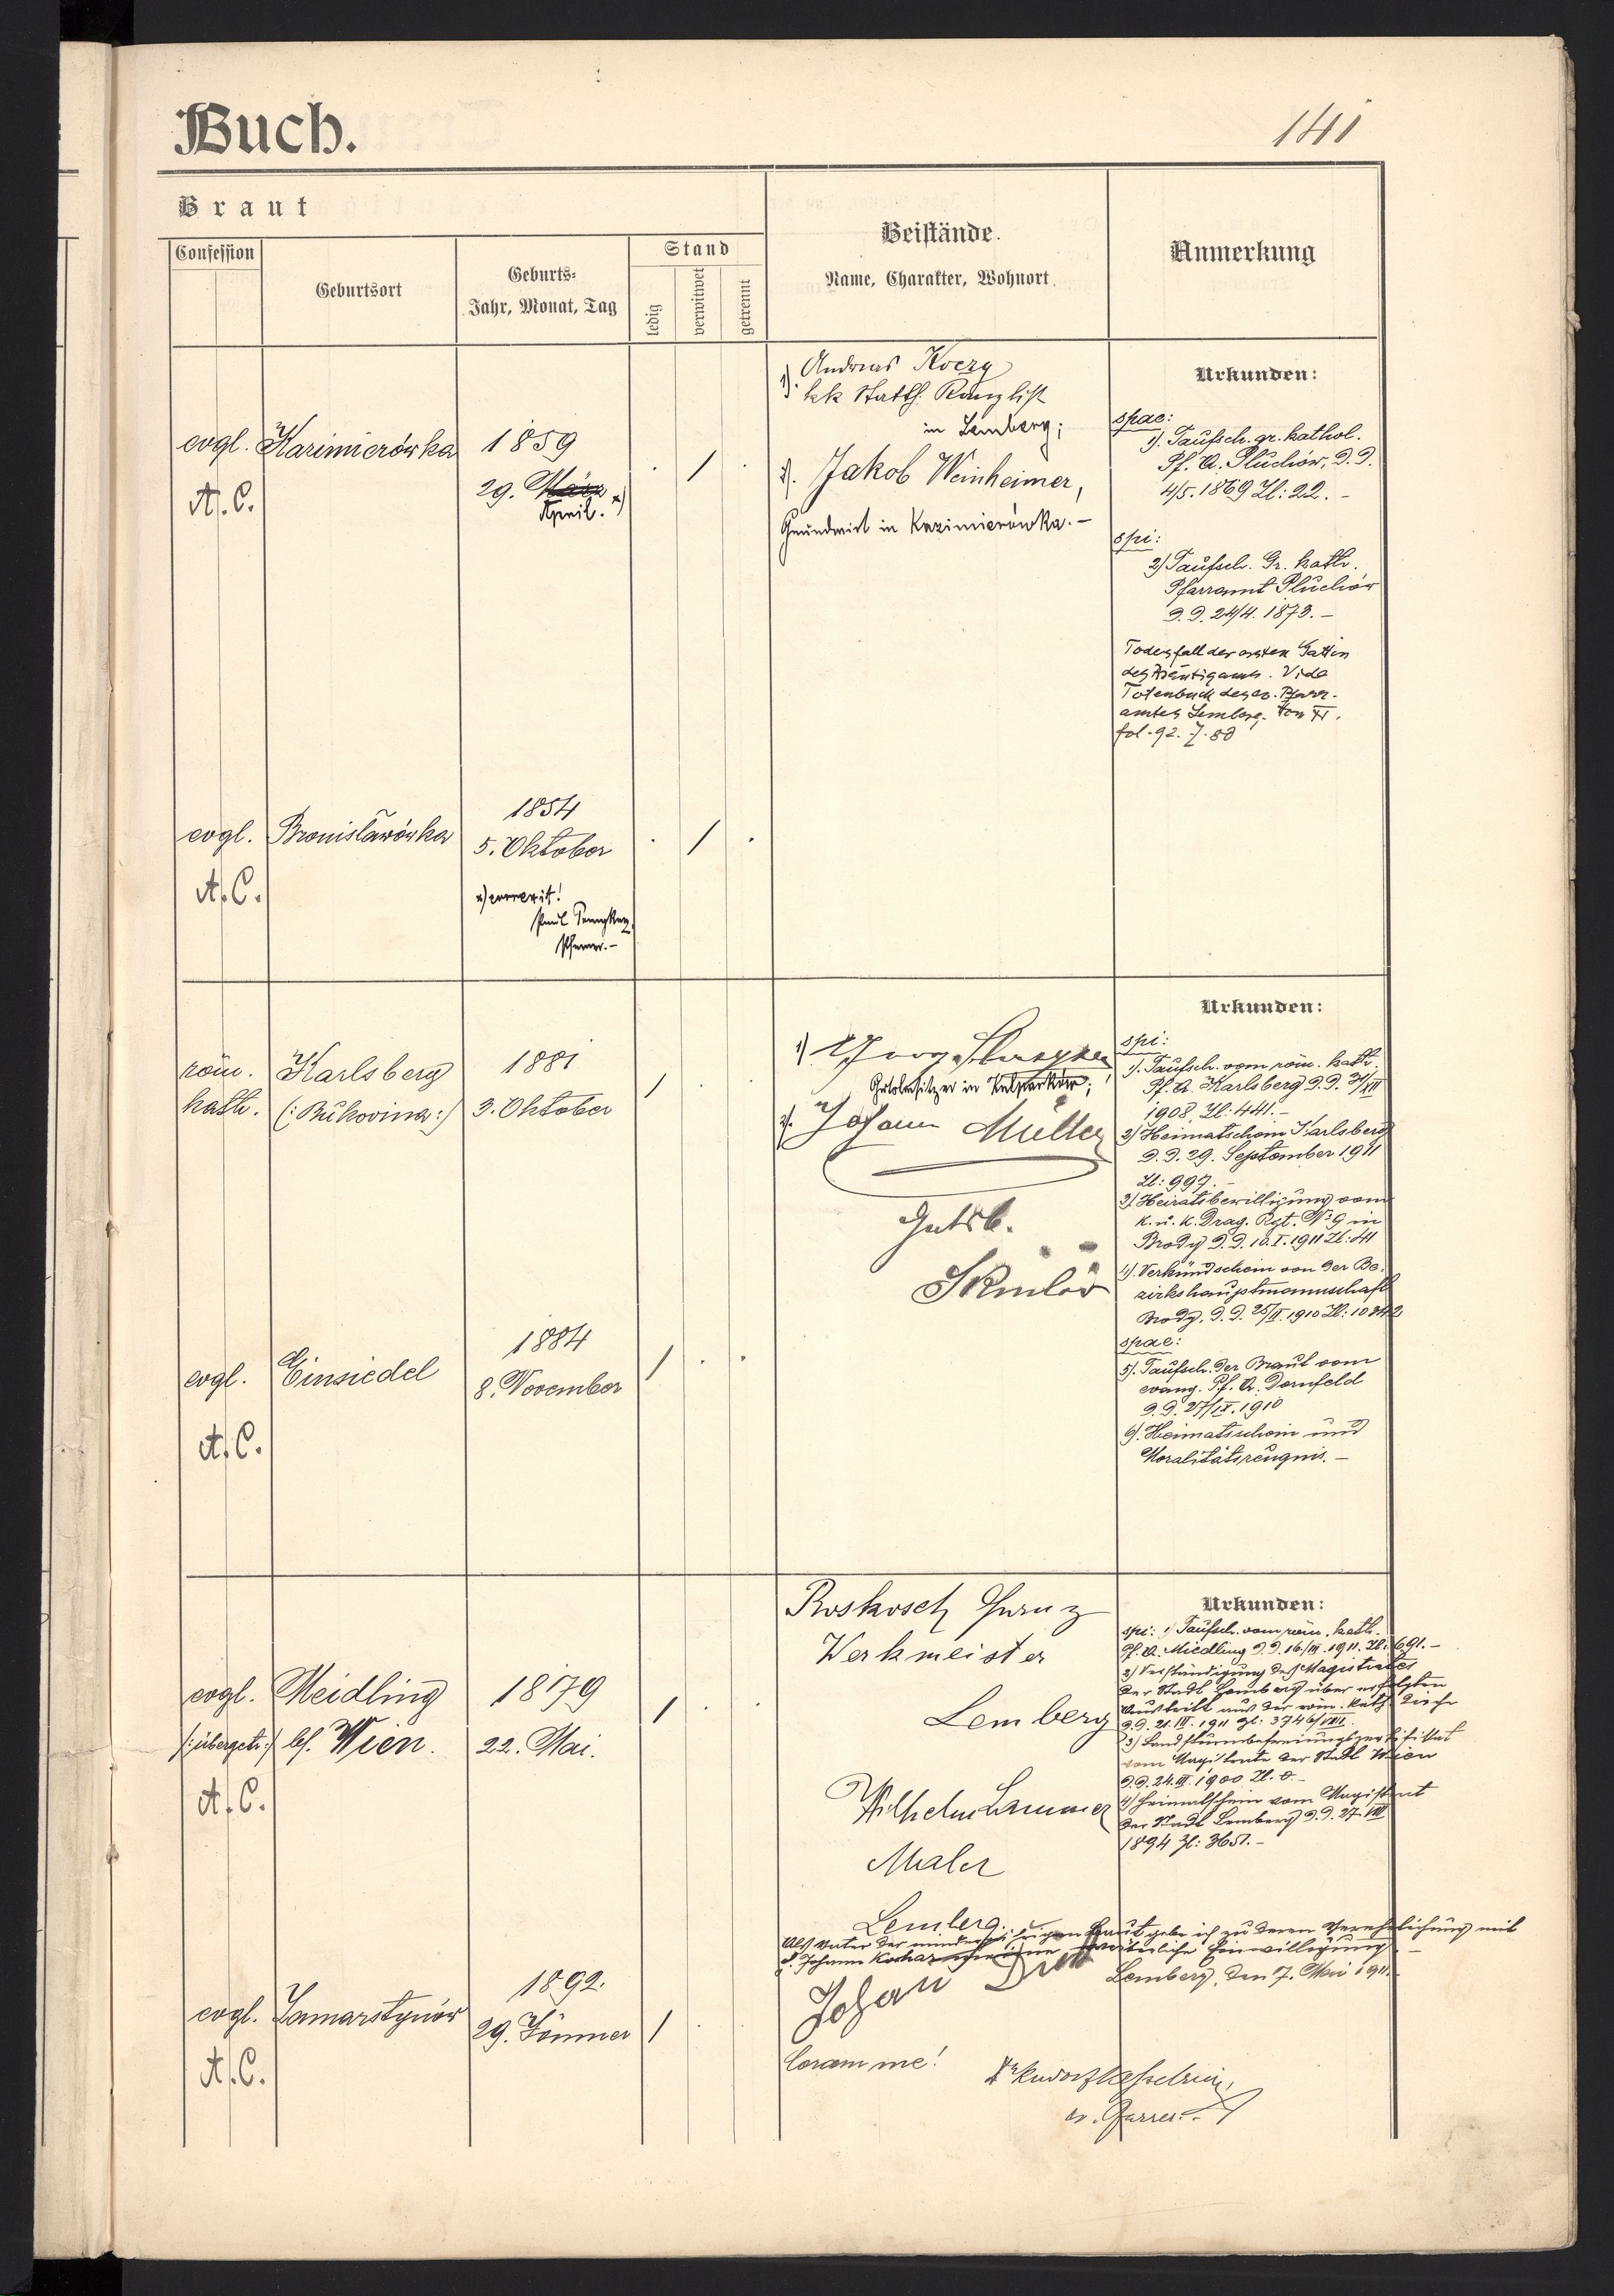 Buch.
141
Braut
Confession
Geburtsort
Geburts-
Jahr, Monat, Tag
Stand
ledig
verwitwet
getrennt
Beistände.
Name, Charakter, Wohnort.
Anmerkung
evgl.
A. C.
Kazimierówka
1859
29. März
April. x)
1). Andreas
kk Statth. Kanzlist
in Lemberg;
2). Jakob Weinheimer,
Grundwirt in Kazimierówka. –
Urkunden:
spae:
1). Taufsch. gr. kathol.
Pf. A. Pluchów, d. d.
4/5. 1869 Zl: 22. –
spi:
2) Taufsch. Gr. kath.
Pfarramt Pluchów
d. d. 24/4. 1873. –
Todesfall der ersten Gattin
des Bräutigams. Vide
Totenbuch des ev. Pfarr-
amtes Lemberg. Tom XI.
fol. 92.
evgl.
A. C.
Bronislawówka
1854
5. Oktober
x) correxit!
Paul
Pfarrer. –
röm.
kath.
Karlsberg
(: Bukovina :)
1881
3. Oktober
1)
Gutsbesitzer in
2). Johann Müller
Gutsb.
Sknilów
Urkunden:
spi:
1). Taufsch. vom röm. kath.
Pf. A. Karlsberg d. d. 3/VII
1908, Zl: 441. –
2) Heimatschein Karlsberg
d. d. 29. September 1911
Zl: 997. –
3). Heiratsbewilligung vom
k. u. k. Drag. Rgt. No 9 in
Brody d. d. 10. I. 1911 Zl: 41
4). Verkündschein von der Be-
zirkshauptmannschaft
Brody, d. d. 25/II. 1910 Zl: 10842
spae:
5). Taufsch. der Braut vom
evang. Pf. A. Dornfeld
d. d. 27/IX. 1910
6). Heimatschein und
Moralitätszeugnis. –
evgl.
A. C.
Einsiedel
1884
8. November
evgl.
(: übergetr. :)
A. C.
Meidling
bs. Wien.
1879
22. Mai.
Roskosch Franz
Werkmeister
Lemberg
Wilhelm Lammer
Maler
Lemberg.
Urkunden:
spi: 1) Taufsch. vom röm. kath.
Pf. A. Miedling d. d. 16/III. 1911. Zl: 691. –
2) Verständigung des Magistrates
der Stadt Lemberg über erfolgten
Austritt aus der röm. kath. Kirche
d. d. 21. III. 1911 Zl: 3746/VIII.
3) Landsturmbefreiungszertifikat
vom Magistrate der Stadt Wien
d. d. 24. III. 1900 Zl. 0. –
4) Heimatschein vom Magistrat
der Stadt Lemberg d. d. 27. VIII
1894 Zl: 3651. –
Als Vater der minderjährigen Braut gebe ich zu deren Verehelichung mit
H. Johann meine väterliche Einwilligung. –
Lemberg, den 7. Mai 1911.
Johan
evgl.
A. C.
Zamarstynów
1892.
29. Jänner
Coram me!
Dr. Kesselring,
ev. Pfarrer. –